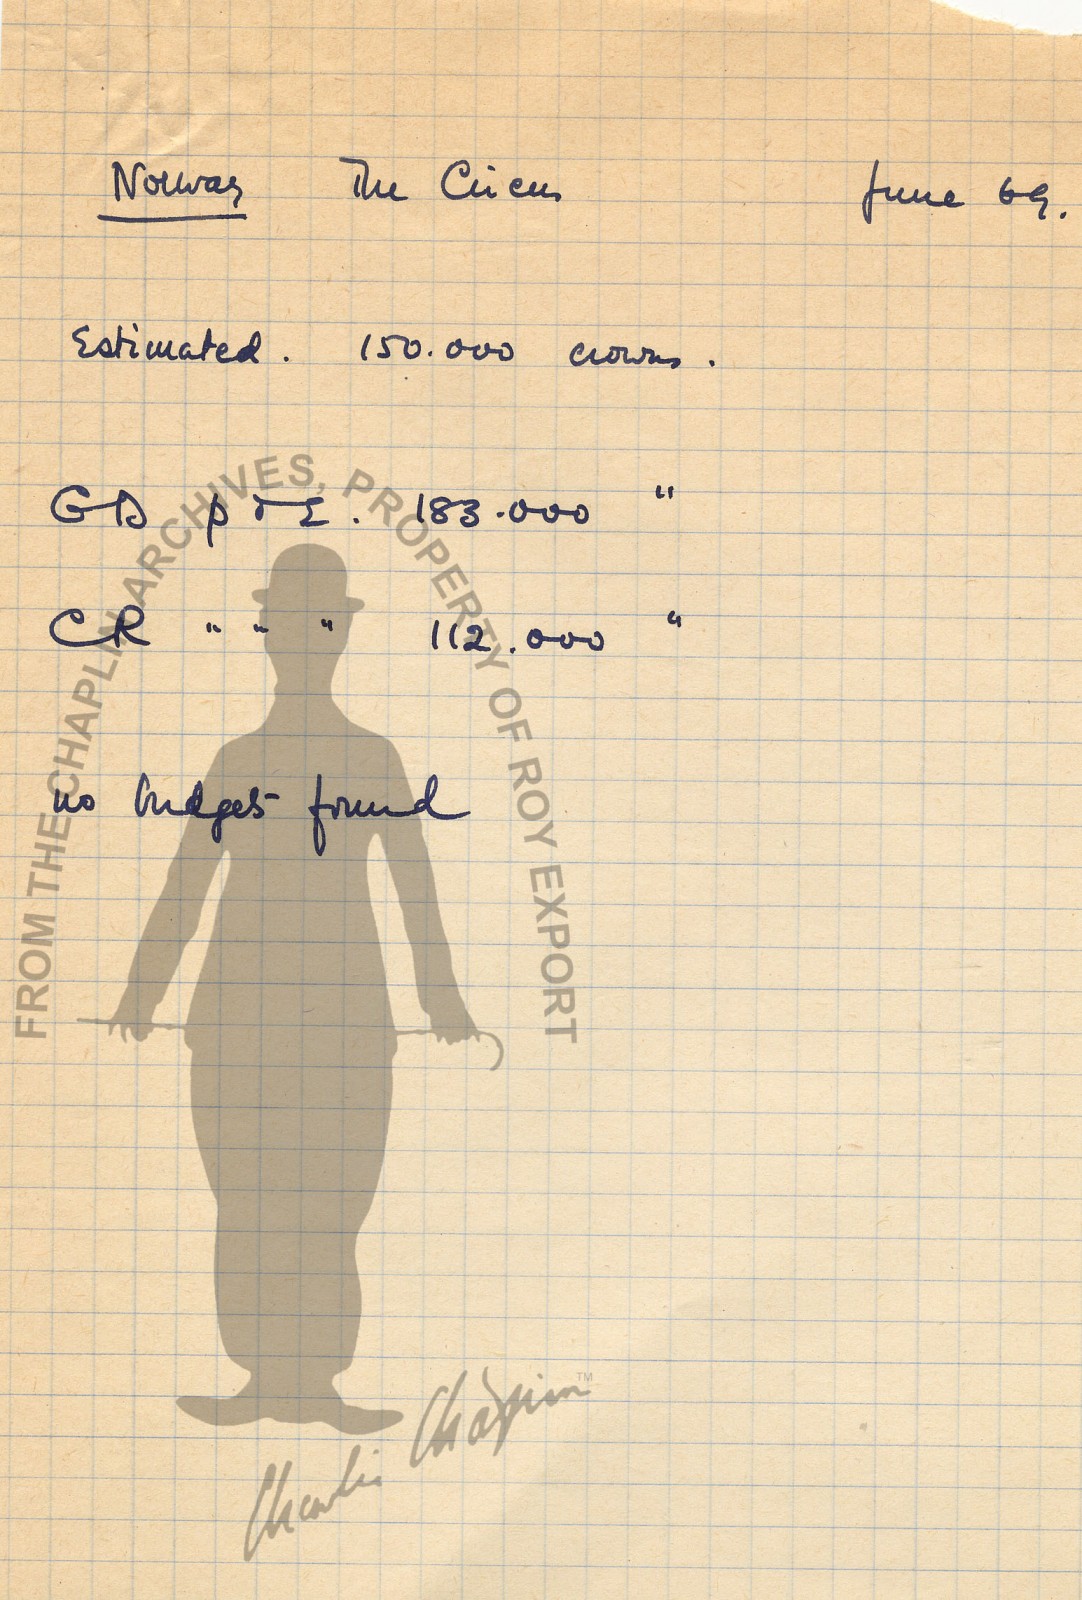 Norway The Circus June 69.
Estimated. 150.000 crowns.
GD 183.000 "
CR " " " 112.000 "
no budget found
FROM THE CHAPLIN ARCHIVES, PROPERTY OF ROY EXPORT
Charlie Chaplin™